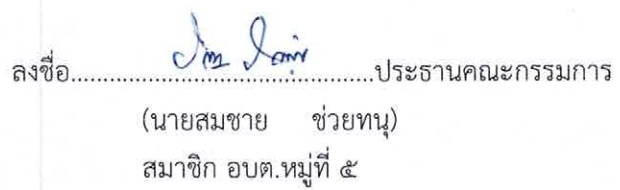 ลงชื่อ..........................................ประธานคณะกรรมการ
(นายสมชาย ช่วยทนุ)
สมาชิก อบต.หมู่ที่ ๕